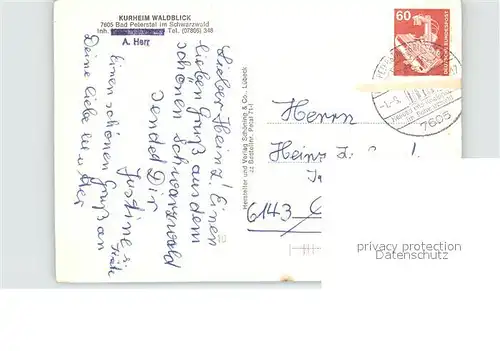 KURHEIM WALDBLICK
7605 Bad Peterstal im Schwarzwald
Inh. Tel. (07806) 346
A. Herr
Lieber Heinz! Einen
lieben Gruß aus dem
schönen Schwarzwald
sendet Dir
Justine
Einen schönen Gruß an
Deine liebe Mutter
Hersteller und Verlag Schöning & Co., Lübeck
60
DEUTSCHE BUNDESPOST
7605
Herrn
Heinz
6143
privacy protection